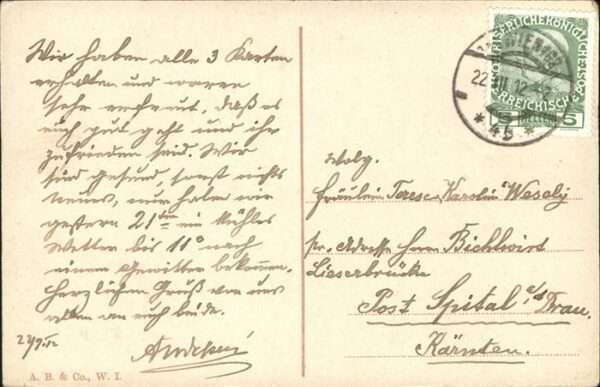 Wir haben alle 3 Karten
erhalten und waren
sehr erfreut, daß es
euch gut geht und ihr
zufrieden seid. Wir
sind gesund, sonst nichts
neues, nur haben wir
gestern 21ten ein kühles
Wetter bis 11° nach
einem Gewitter bekommen.
Herzlichen Gruß von uns
allen an euch beide.
A. B. & Co., W. I.
WIEN
22. VII. 12
* 4b *
KAISERLICHE KÖNIGLICHE
ÖSTERREICHISCHE
5 HELLER 5
Wolg.
Fräulein Terese, Karolin Wesely
pr. Adresse Herrn Bichlwirt
Lieserbrücke
Post Spital a/d Drau.
Kärnten.